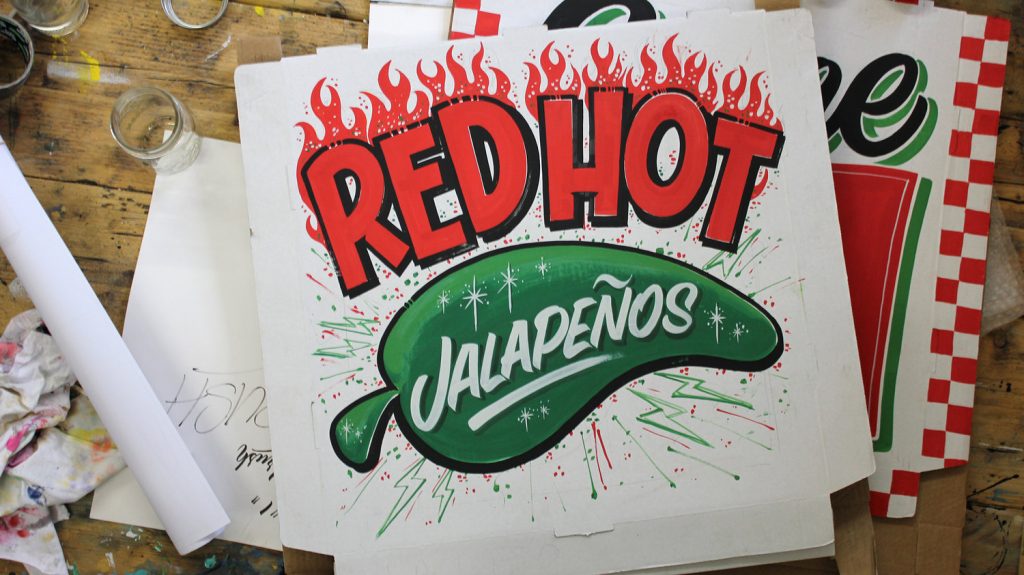 RED HOT
JALAPEÑOS